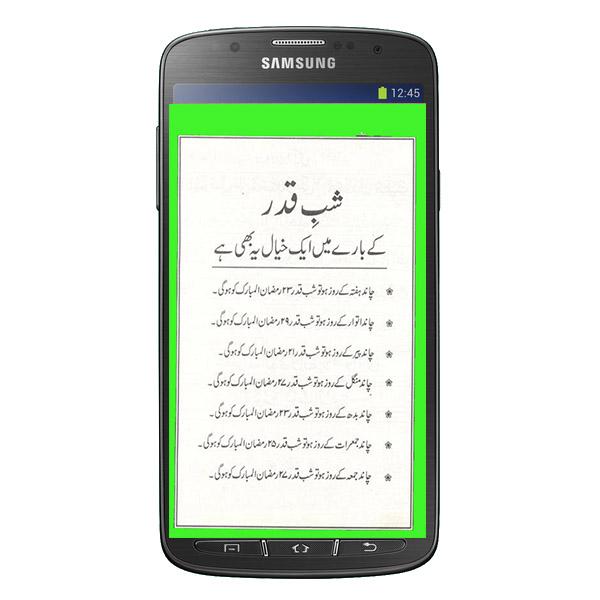 SAMSUNG
12:45
شبِ قدر
کے بارے میں ایک خیال یہ بھی ہے
چاند ہفتہ کے روز ہو تو شب قدر ۲۳ رمضان المبارک کو ہوگی۔
چاند اتوار کے روز ہو تو شب قدر ۲۹ رمضان المبارک کو ہوگی۔
چاند پیر کے روز ہو تو شب قدر ۲۱ رمضان المبارک کو ہوگی۔
چاند منگل کے روز ہو تو شب قدر ۲۷ رمضان المبارک کو ہوگی۔
چاند بدھ کے روز ہو تو شب قدر ۲۳ رمضان المبارک کو ہوگی۔
چاند جمعرات کے روز ہو تو شب قدر ۲۵ رمضان المبارک کو ہوگی۔
چاند جمعہ کے روز ہو تو شب قدر ۲۷ رمضان المبارک کو ہوگی۔